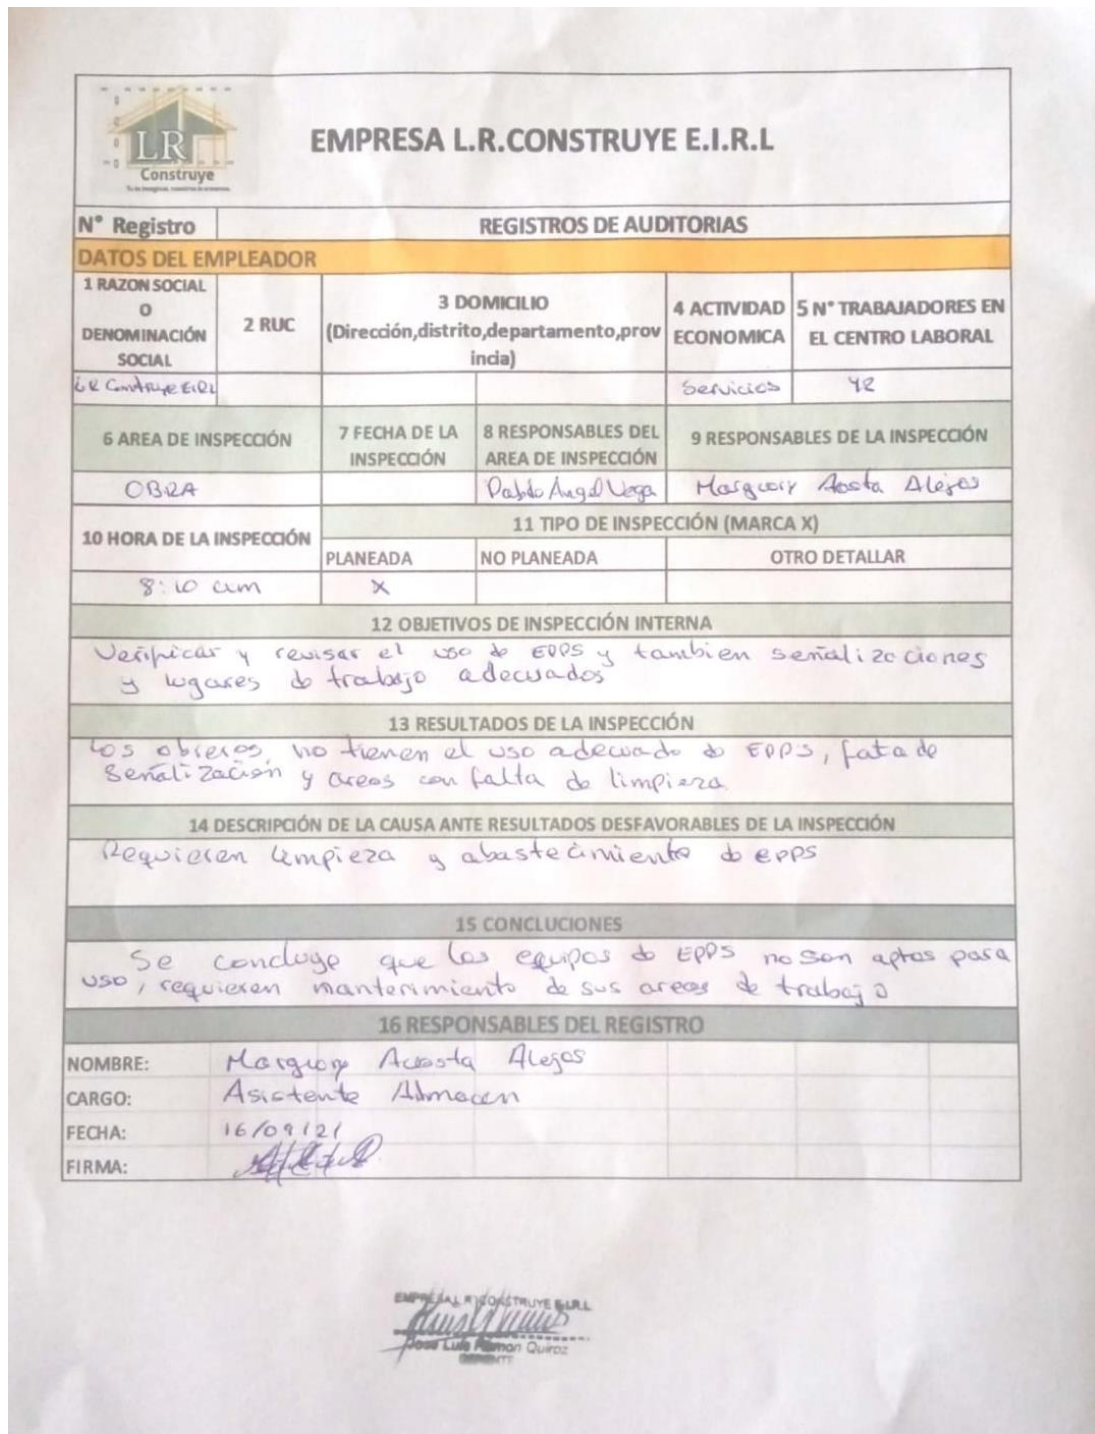 LR
Construye
EMPRESA L.R.CONSTRUYE E.I.R.L
N° Registro
REGISTROS DE AUDITORIAS
DATOS DEL EMPLEADOR
1 RAZON SOCIAL
O
DENOMINACIÓN
SOCIAL
2 RUC
3 DOMICILIO
(Dirección,distrito,departamento,prov
incia)
4 ACTIVIDAD
ECONOMICA
5 N° TRABAJADORES EN
EL CENTRO LABORAL
LR Construye EIRL
Servicios
42
6 AREA DE INSPECCIÓN
7 FECHA DE LA
INSPECCIÓN
8 RESPONSABLES DEL
AREA DE INSPECCIÓN
9 RESPONSABLES DE LA INSPECCIÓN
OBRA
Pablo Angel Vega
Margiory Acosta Alejos
10 HORA DE LA INSPECCIÓN
11 TIPO DE INSPECCIÓN (MARCA X)
PLANEADA
NO PLANEADA
OTRO DETALLAR
8:10 am
X
12 OBJETIVOS DE INSPECCIÓN INTERNA
Verificar y revisar el uso de EPPS y tambien señalizaciones
y lugares de trabajo adecuados
13 RESULTADOS DE LA INSPECCIÓN
Los obreros, no tienen el uso adecuado de EPPS, fata de
Señalización y areas con falta de limpieza
14 DESCRIPCIÓN DE LA CAUSA ANTE RESULTADOS DESFAVORABLES DE LA INSPECCIÓN
Requieren limpieza y abastecimiento de epps
15 CONCLUCIONES
Se concluye que los equipos de EPPS no son aptos para
uso, requieren mantenimiento de sus areas de trabajo
16 RESPONSABLES DEL REGISTRO
NOMBRE: Margiory Acosta Alejos
CARGO: Asistente Almacen
FECHA: 16/09/21
FIRMA:
EMPRESA L R CONSTRUYE E.I.R.L
Jose Luis Ramon Quiroz
GERENTE